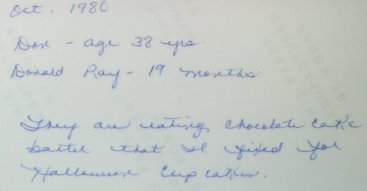 Oct. 1980
Don - age 38 yrs.
Donald Ray - 19 months
They are eating chocolate cake
batter that I fixed for
Halloween cup cakes.